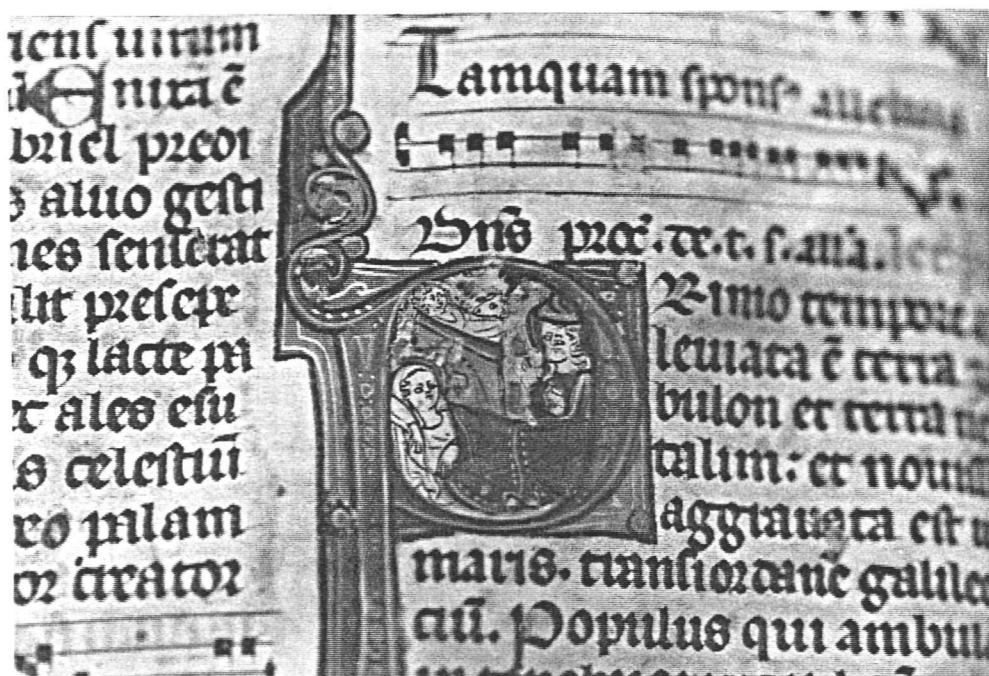 ienſ uirum
Enixa ē
briel predi
aluo geſti
nes ſenſerat
lit preſepe
qꝫ lacte pa
ales eſu
s celeſtiū
palam
or creator
Tamquam ſponſ⁹ alleluia
V.
PRimo tempore a
leuiata ē terra
bulon et terra ne
talim: et nouiſſ
aggrauata eſt u
maris. tranſiordanē galilee
ciū. Populus qui ambul